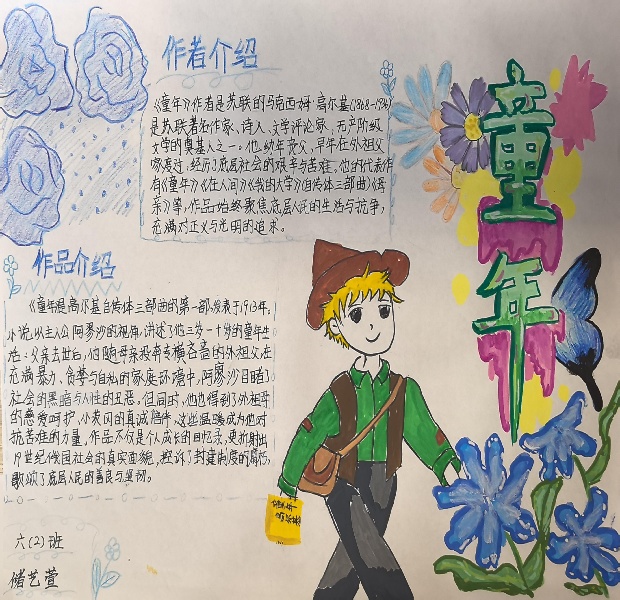 作者介绍
《童年》作者是苏联的马克西姆·高尔基(1868-1936)
是苏联著名作家、诗人、文学评论家,无产阶级
文学的奠基人之一。他幼年丧父,早年在外祖父
家度过,经历了底层社会的艰辛与苦难。他的代表作
有《童年》《在人间》《我的大学》自传体三部曲《母
亲》等,作品始终聚焦底层人民的生活与抗争,
充满对正义与光明的追求。
童年
作品介绍
《童年是高尔基自传体三部曲的第一部,发表于1913年,
小说以主人公阿廖沙的视角,讲述了他三岁一十岁的童年生
活:父亲去世后,他随母亲投奔专横吝啬的外祖父在
充满暴力、贪婪与自私的家庭环境中,阿廖沙目睹了
社会的黑暗与人性的丑恶。但同时,他也得到了外祖母
的慈爱呵护,小茨冈的真诚陪伴,这些温暖成为他对
抗苦难的力量,作品不仅是个人成长的回忆录,更折射出
19世纪俄国社会的真实面貌,控诉了封建制度的腐朽,
歌颂了底层人民的善良与坚韧。
六(2)班
储艺萱